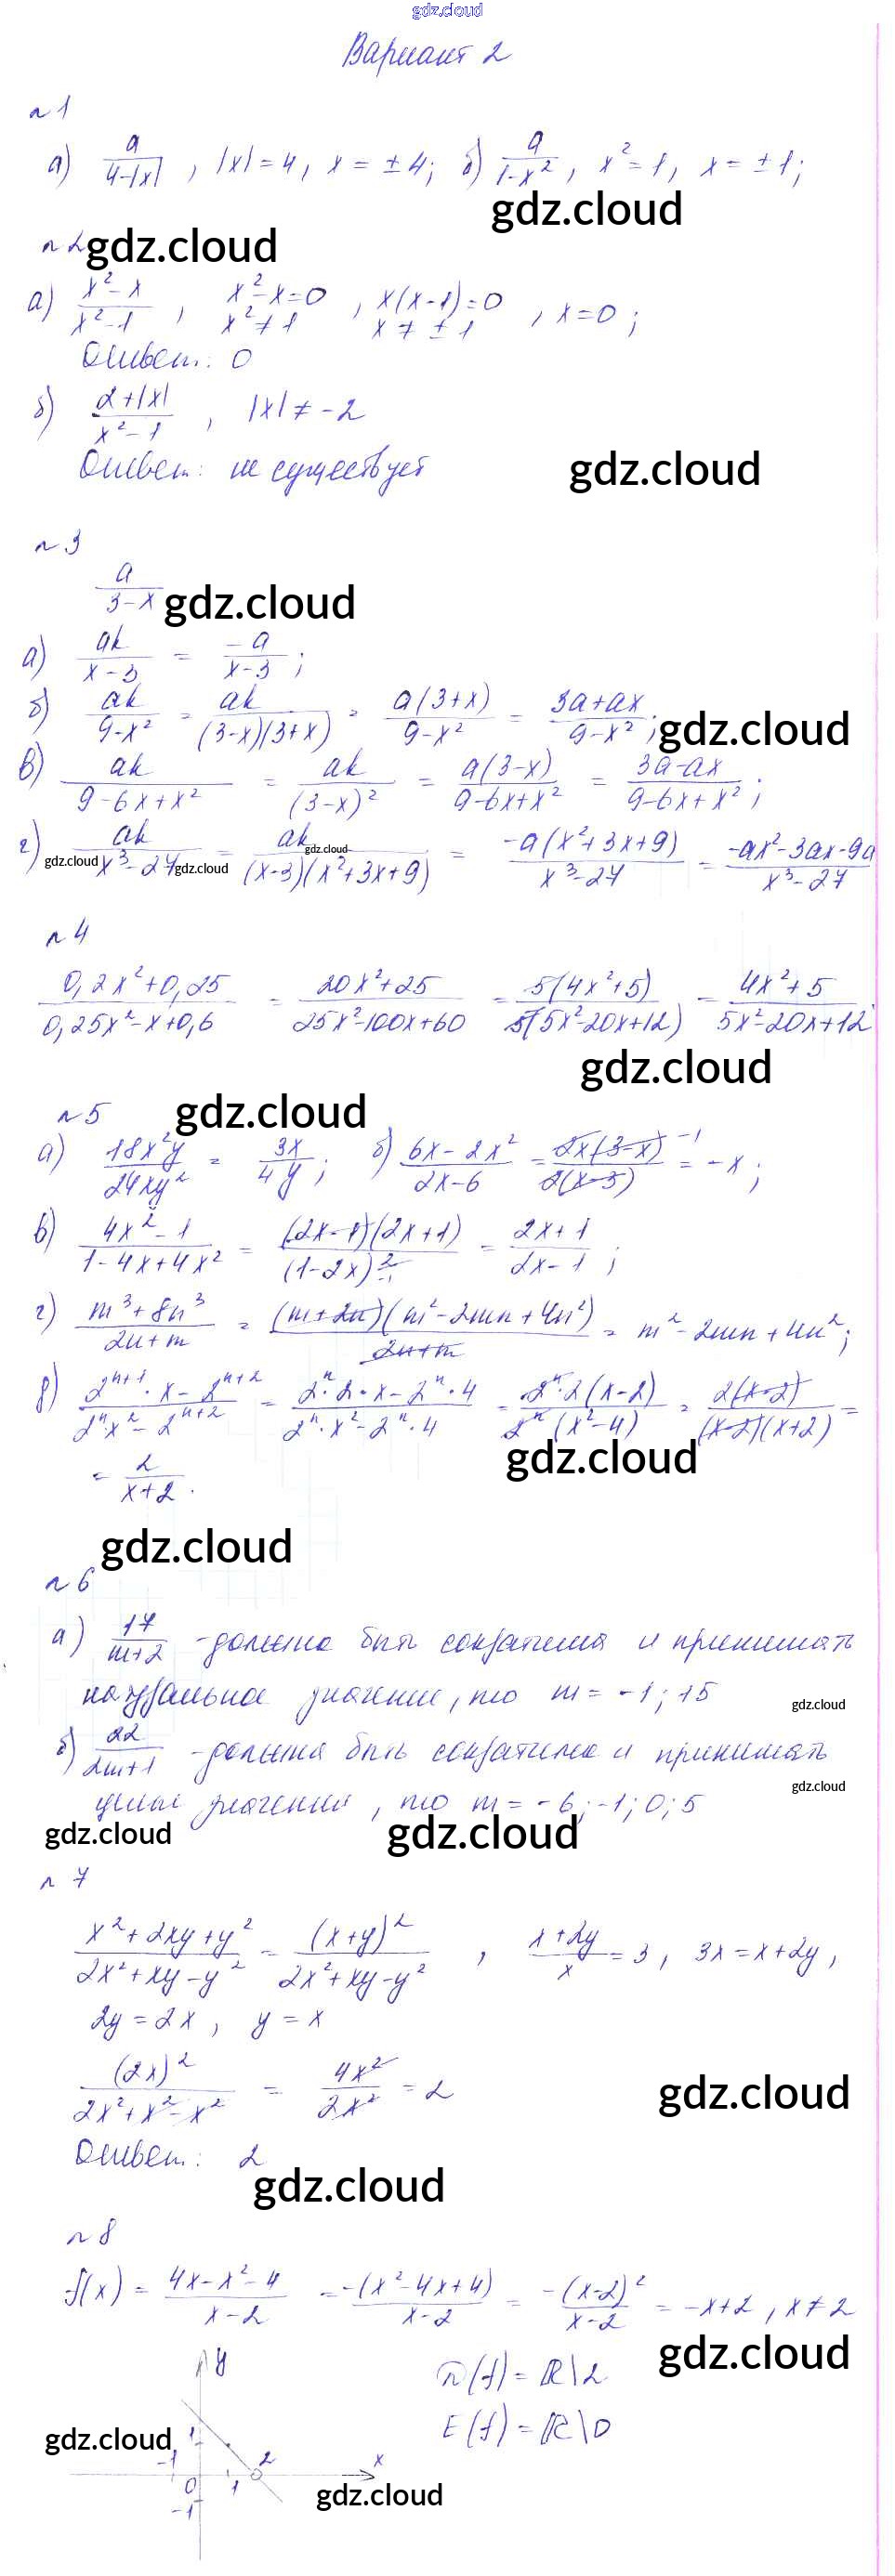 gdz.cloud
Вариант 2
n 1
а) a/(4-|x|), |x| = 4, x = ±4; б) a/(1-x²), x² = 1, x = ±1;
gdz.cloud
n 2 gdz.cloud
а) (x²-x)/(x²-1), x²-x=0 x²≠1, x(x-1)=0 x≠±1, x=0;
Ответ: 0
б) (2+|x|)/(x²-1), |x| ≠ -2
Ответ: не существует
gdz.cloud
n 3
a/(3-x) gdz.cloud
а) ak/(x-3) = -a/(x-3);
б) ak/(9-x²) = ak/((3-x)(3+x)) = a(3+x)/(9-x²) = (3a+ax)/(9-x²); gdz.cloud
в) ak/(9-6x+x²) = ak/(3-x)² = a(3-x)/(9-6x+x²) = (3a-ax)/(9-6x+x²);
г) ak/(x³-27) = ak/((x-3)(x²+3x+9)) = -a(x²+3x+9)/(x³-27) = (-ax²-3ax-9a)/(x³-27)
gdz.cloud gdz.cloud gdz.cloud
n 4
(0,2x²+0,25)/(0,25x²-x+0,6) = (20x²+25)/(25x²-100x+60) = 5(4x²+5)/(5(5x²-20x+12)) = (4x²+5)/(5x²-20x+12).
gdz.cloud
n 5 gdz.cloud
а) 18x²y/(24xy²) = 3x/(4y); б) (6x-2x²)/(2x-6) = 2x(3-x)/(2(x-3)) ⁻¹ = -x;
в) (4x²-1)/(1-4x+4x²) = (2x-1)(2x+1)/(1-2x)² = (2x+1)/(2x-1);
г) (m³+8n³)/(2n+m) = (m+2n)(m²-2mn+4n²)/(2n+m) = m²-2mn+4n²;
д) (2ⁿ⁺¹·x-2ⁿ⁺²)/(2ⁿ·x²-2ⁿ⁺²) = (2ⁿ·2·x-2ⁿ·4)/(2ⁿ·x²-2ⁿ·4) = 2ⁿ·2(x-2)/(2ⁿ(x²-4)) = 2(x-2)/((x-2)(x+2)) =
gdz.cloud
= 2/(x+2).
gdz.cloud
n 6
а) 17/(m+2) - должна быть сократима и принимать
натуральное значение, то m = -1; 15
gdz.cloud
б) 22/(2m+1) - должна быть сократима и принимать
gdz.cloud
целые значения, то m = -6; -1; 0; 5
gdz.cloud gdz.cloud
n 7
(x²+2xy+y²)/(2x²+xy-y²) = (x+y)²/(2x²+xy-y²), (x+2y)/x = 3, 3x = x+2y,
2y = 2x, y = x
(2x)²/(2x²+x²-x²) = 4x²/2x² = 2
gdz.cloud
Ответ: 2
gdz.cloud
n 8
f(x) = (4x-x²-4)/(x-2) = -(x²-4x+4)/(x-2) = -(x-2)²/(x-2) = -x+2, x≠2
gdz.cloud
y
D(f) = ℝ\2
E(f) = ℝ\0
gdz.cloud
1
-1 0 1 2 x
-1
gdz.cloud